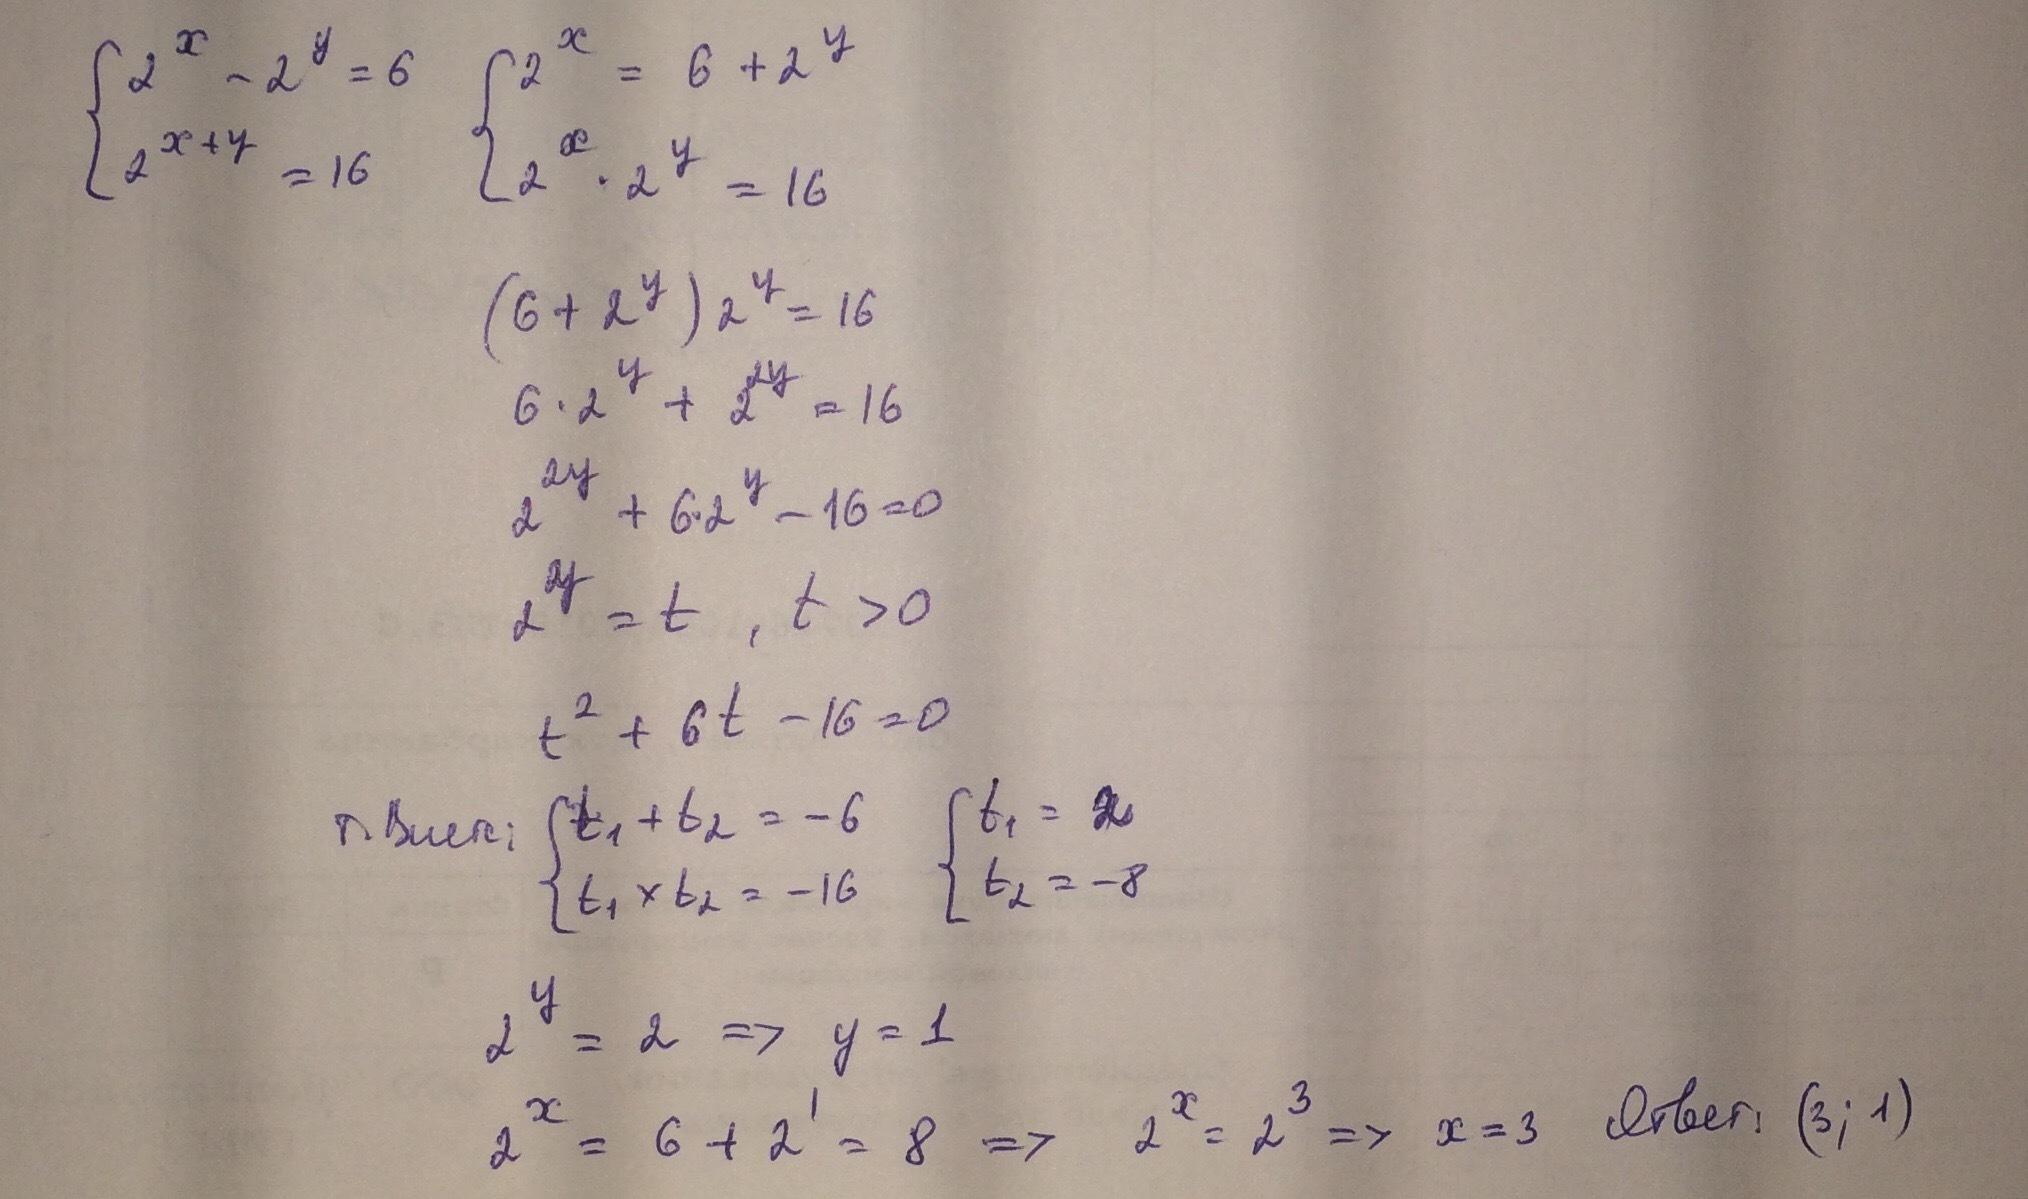 {2^x - 2^y = 6   {2^x = 6 + 2^y
{2^(x+y) = 16   {2^x · 2^y = 16
(6 + 2^y) 2^y = 16
6 · 2^y + 2^(2y) = 16
2^(2y) + 6·2^y - 16 = 0
2^y = t , t > 0
t^2 + 6t - 16 = 0
т. Виета: {t₁ + t₂ = -6   {t₁ = 2
{t₁ × t₂ = -16   {t₂ = -8
2^y = 2 => y = 1
2^x = 6 + 2^1 = 8 => 2^x = 2^3 => x = 3 Ответ: (3; 1)